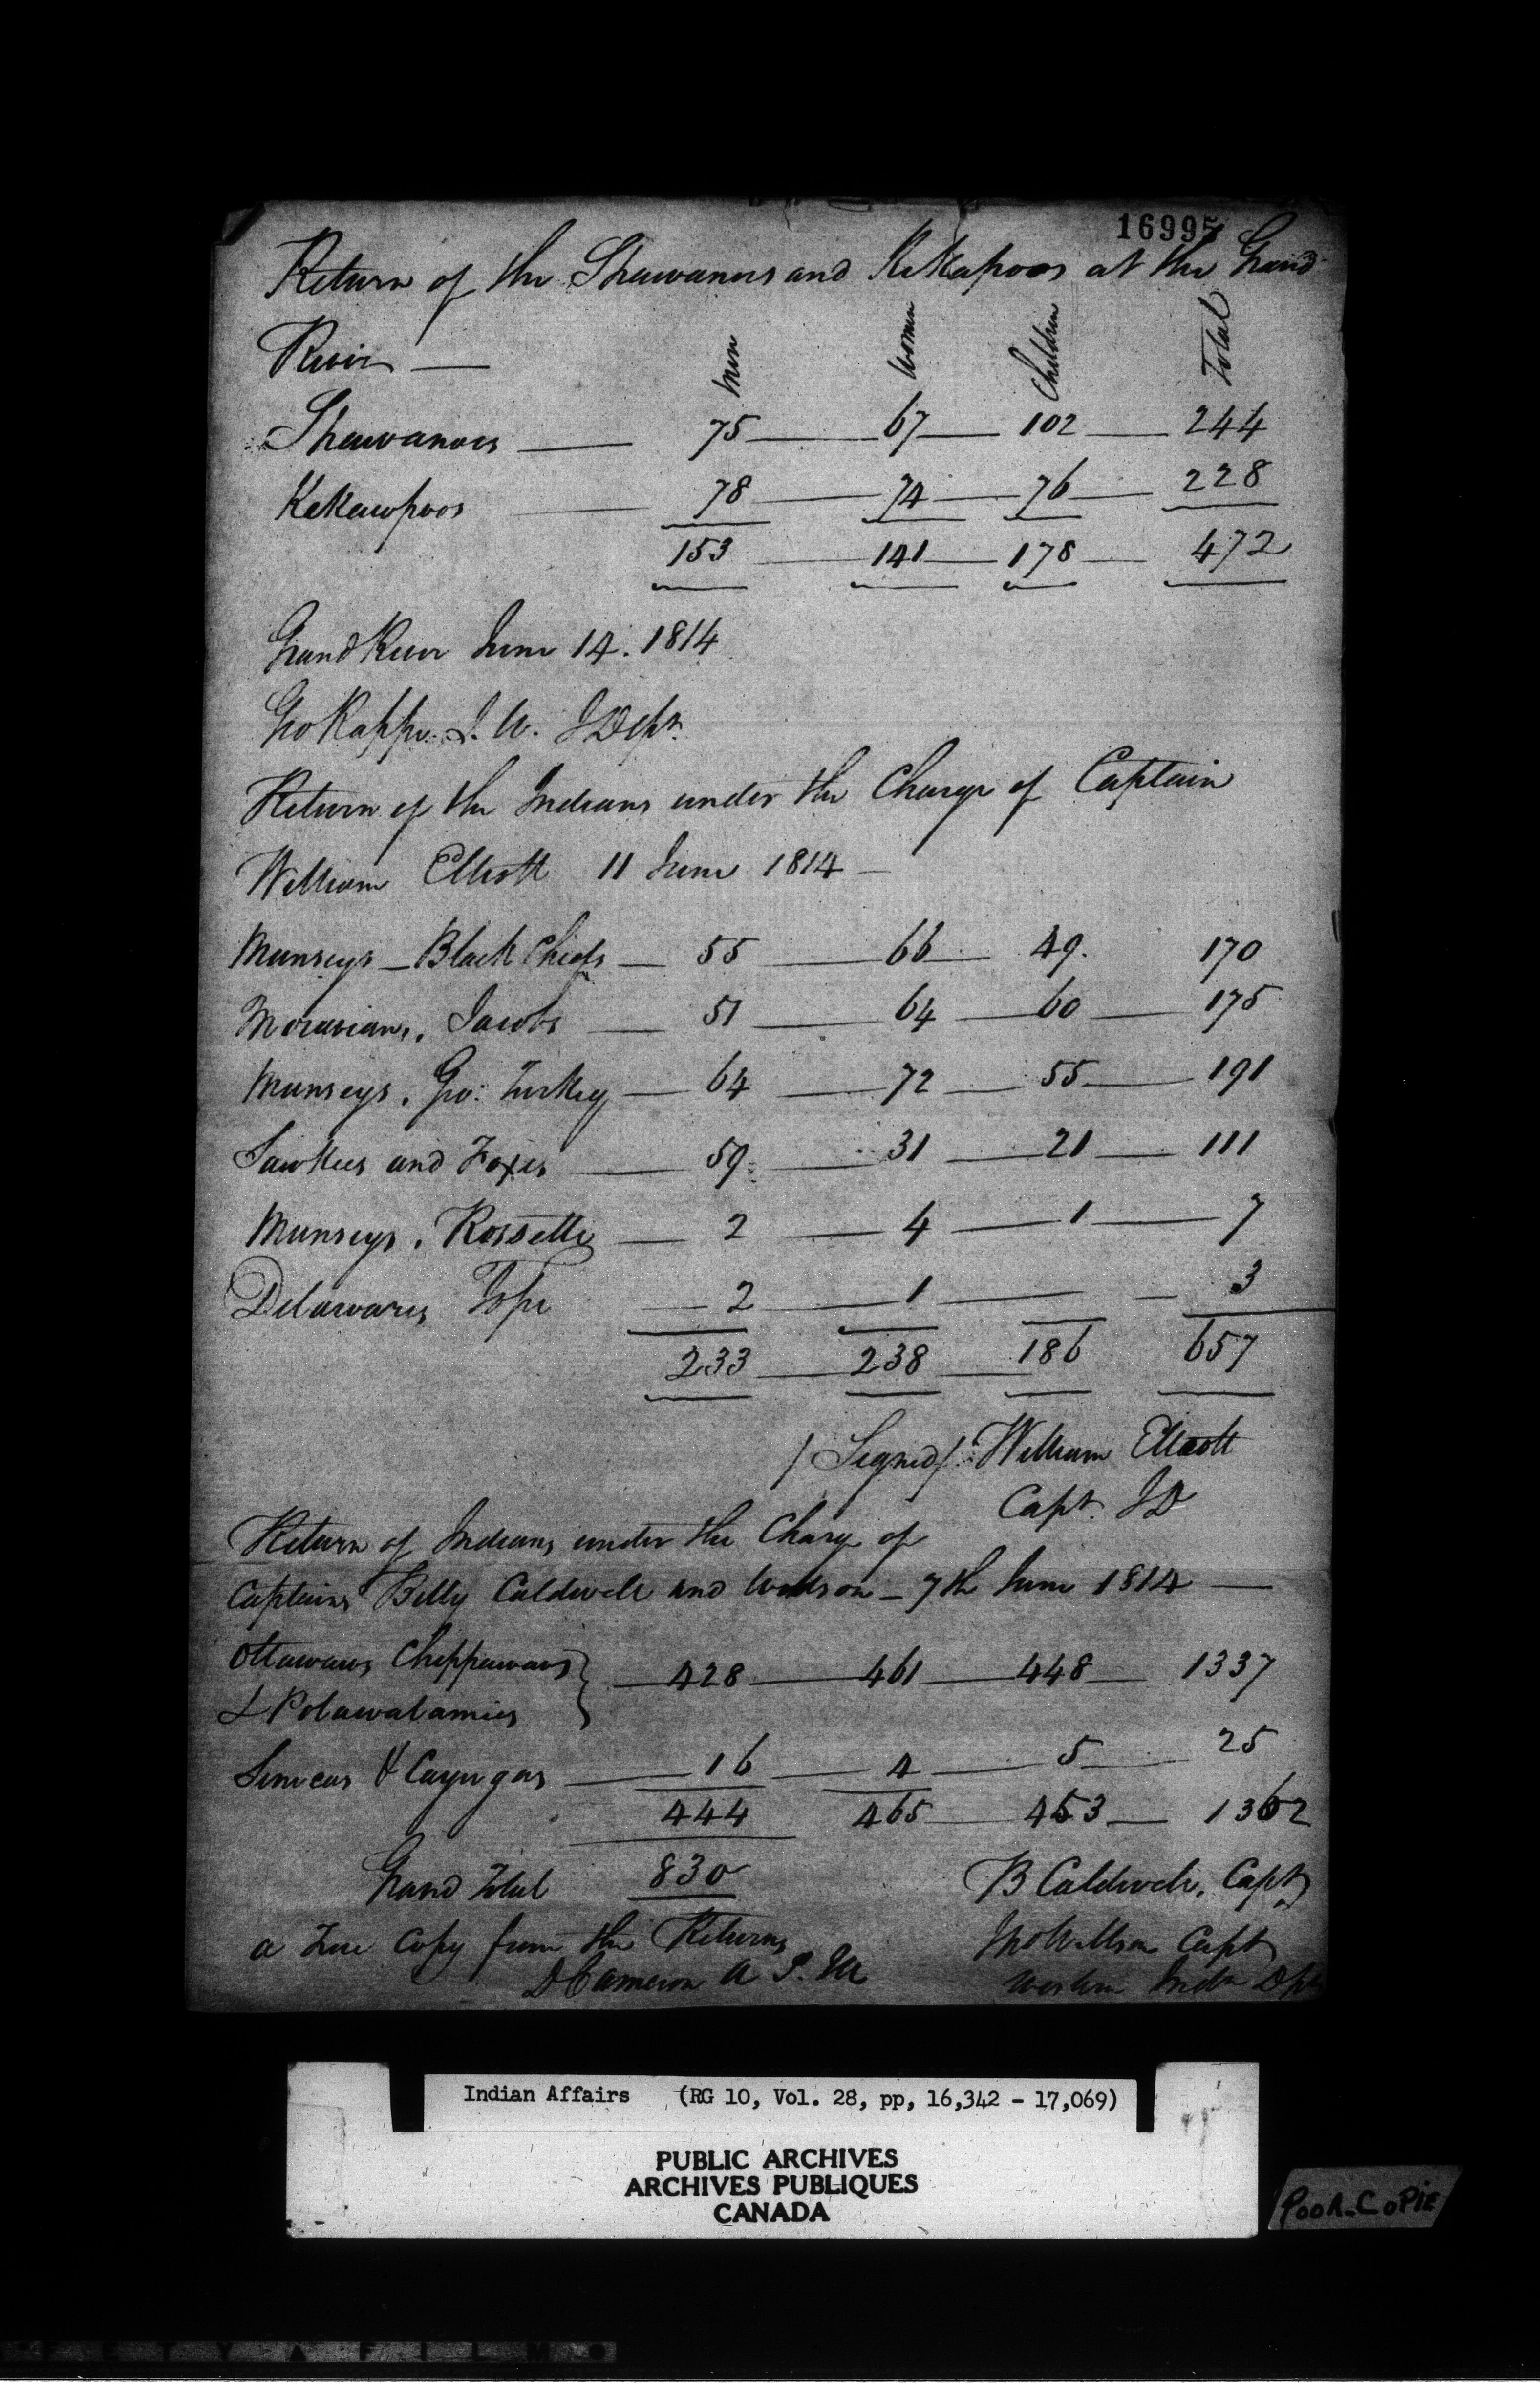 16995
Return of the Shawanoes and Kekapoos at the Grand
River — Men Women Children Total
Shawanoes — 75 — 67 — 102 — 244
Kekawpoos — 78 — 74 — 76 — 228
153 — 141 — 178 — 472
Grand River June 14. 1814
Geo Rapp I. Dept.
Return of the Indians under the Charge of Captain
William Elliott 11 June 1814 —
Munseys — Black Chiefs — 55 — 66 — 49. 170
Moravians, Jacobs — 51 — 64 — 60 — 175
Munseys, Geo: Turkey — 64 — 72 — 55 — 191
Sawkees and Foxes — 59 — 31 — 21 — 111
Munseys, Rossette — 2 — 4 — 1 — 7
Delawares Tope — 2 — 1 — — 3
233 — 238 — 186 657
/Signed/ William Elliott
Capt. ID
Return of Indians under the Charge of
Captains Billy Caldwell and Wilson — 7th June 1814 —
Ottawaws Chippawaws } — 428 — 461 — 448 — 1337
& Potawatamies
Senecas & Cayugas — 16 — 4 — 5 — 25
444 465 — 453 — 1362
Grand Total 830 B Caldwell, Capt
a True Copy from the Returns Jno Willson Capt
D Cameron Western Indn Dpt
Indian Affairs (RG 10, Vol. 28, pp, 16,342 - 17,069)
PUBLIC ARCHIVES
ARCHIVES PUBLIQUES
CANADA
POOR COPIE